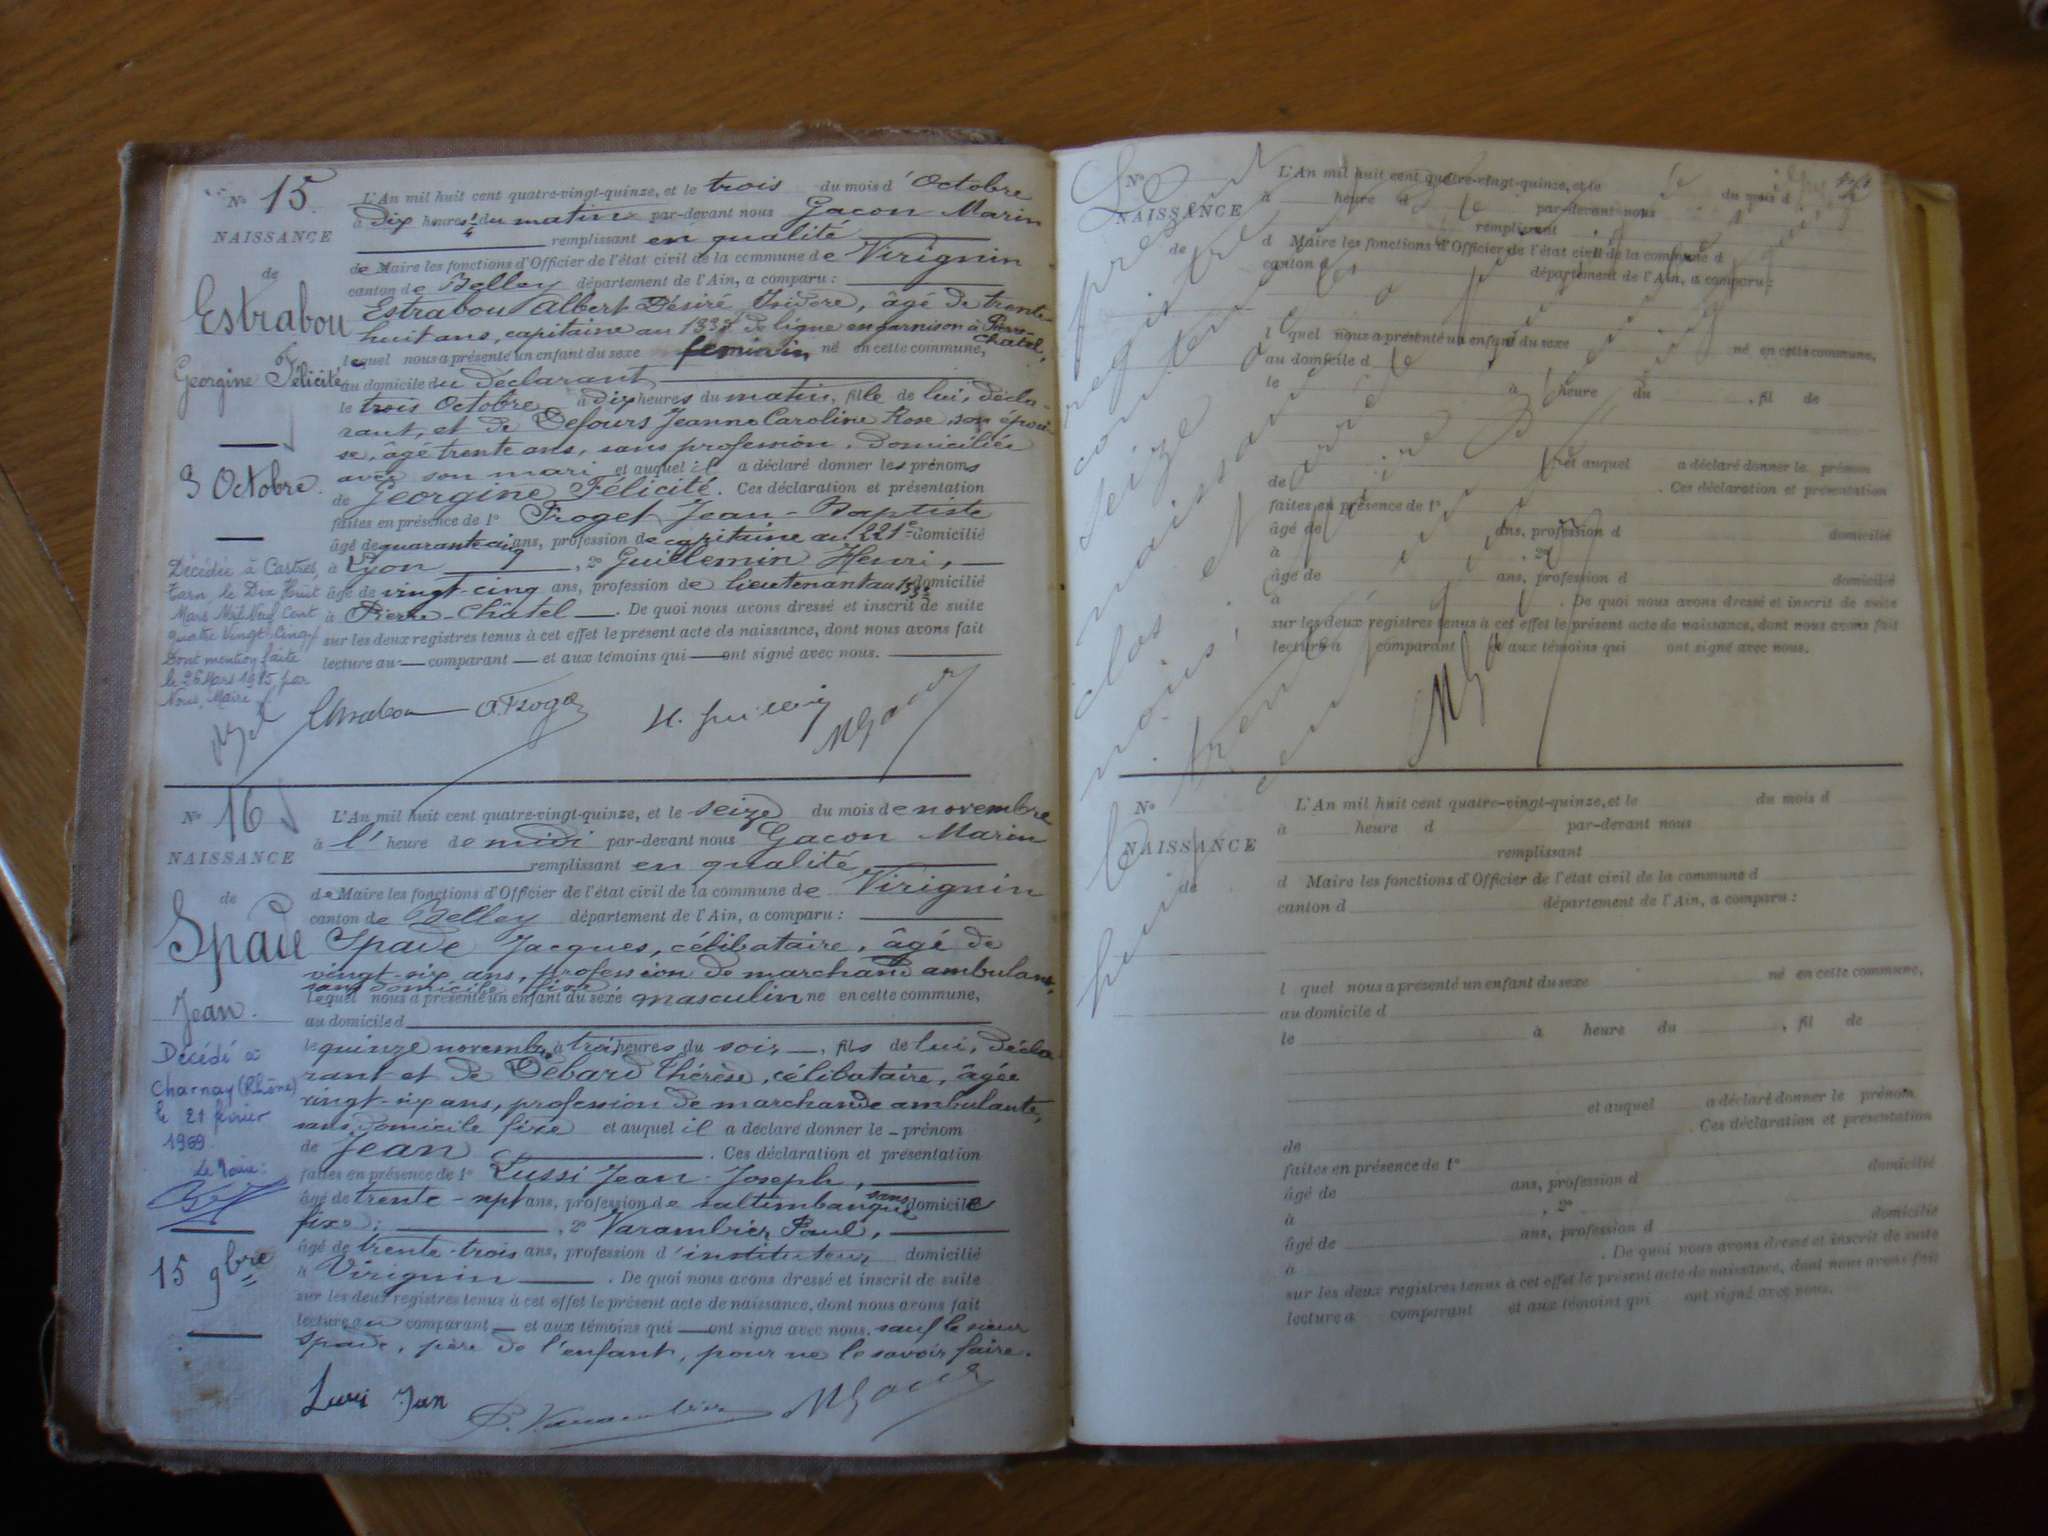 N° 15.
NAISSANCE
de
Estrabou
Georgine Félicité
3 Octobre.
Décédée à Castres,
Tarn, le Dix Huit
Mars Mil Neuf Cent
quatre Vingt Cinq
Dont mention faite
le 26 Mars 1985 par
Nous, Maire
L'An mil huit cent quatre-vingt-quinze, et le trois du mois d'Octobre
à dix heures 1/4 du matin par-devant nous Gacon Marin
remplissant en qualité
de Maire les fonctions d'Officier de l'état civil de la commune de Virignin
canton de Belley département de l'Ain, a comparu :
Estrabou Albert Désiré Isidore, âgé de trente-
huit ans, capitaine au 133e de ligne en garnison à Pierre-
Chatel,
lequel nous a présenté un enfant du sexe feminin né en cette commune,
au domicile du déclarant
le trois Octobre à dix heures du matin, fille de lui, décla-
rant, et de Defours Jeanne Caroline Rose, son épou-
se, âgé trente ans, sans profession, domiciliés
avec son mari et auquel il a déclaré donner les prénoms
de Georgine Félicité. Ces déclaration et présentation
faites en présence de 1° Froget Jean-Baptiste
âgé de quarante cinq ans, profession de capitaine au 221e domicilié
à Lyon, 2° Guillemin Henri,
âgé de vingt-cinq ans, profession de lieutenant au 133e domicilié
à Pierre-Châtel. De quoi nous avons dressé et inscrit de suite
sur les deux registres tenus à cet effet le présent acte de naissance, dont nous avons fait
lecture au comparant et aux témoins qui ont signé avec nous.
Estrabou Froget H. Guillemin MGacon
N° 16
NAISSANCE
de
Spade
Jean.
Décédé à
Charnay (Rhône)
le 21 février
1969
Le Maire :
15 9bre
L'An mil huit cent quatre-vingt-quinze, et le seize du mois de novembre
à l'heure de midi par-devant nous Gacon Marin
remplissant en qualité
de Maire les fonctions d'Officier de l'état civil de la commune de Virignin
canton de Belley département de l'Ain, a comparu :
Spade Jacques, célibataire, âgé de
vingt-six ans, profession de marchand ambulant,
sans domicile fixe
lequel nous a présenté un enfant du sexe masculin né en cette commune,
au domicile d
le quinze novembre à trois heures du soir, fils de lui, décla-
rant et de Debard Thérèse, célibataire, âgée
vingt-six ans, profession de marchande ambulante,
sans domicile fixe et auquel il a déclaré donner le prénom
de Jean. Ces déclaration et présentation
faites en présence de 1° Lussi Jean-Joseph,
âgé de trente-sept ans, profession de saltimbanque sans domicile
fixe ; 2° Varambier Paul,
âgé de trente-trois ans, profession d'instituteur domicilié
à Virignin. De quoi nous avons dressé et inscrit de suite
sur les deux registres tenus à cet effet le présent acte de naissance, dont nous avons fait
lecture au comparant et aux témoins qui ont signé avec nous, sauf le sieur
Spade, père de l'enfant, pour ne le savoir faire.
Lussi Jean P. Varambier MGacon
Le présent registre
contenant
seize
naissances
clos et arrêté
par nous,
trente
décembre
huit cent
N°
NAISSANCE
de
L'An mil huit cent quatre-vingt-quinze, et le du mois d
à heure d par-devant nous
remplissant
d Maire les fonctions d'Officier de l'état civil de la commune d
canton d département de l'Ain, a comparu :
l quel nous a présenté un enfant du sexe né en cette commune,
au domicile d
le à heure du , fil de
et auquel a déclaré donner le prénom
de . Ces déclaration et présentation
faites en présence de 1°
âgé de ans, profession d domicilié
à , 2°
âgé de ans, profession d domicilié
à . De quoi nous avons dressé et inscrit de suite
sur les deux registres tenus à cet effet le présent acte de naissance, dont nous avons fait
lecture à comparant et aux témoins qui ont signé avec nous.
N°
NAISSANCE
de
L'An mil huit cent quatre-vingt-quinze, et le du mois d
à heure d par-devant nous
remplissant
d Maire les fonctions d'Officier de l'état civil de la commune d
canton d département de l'Ain, a comparu :
l quel nous a présenté un enfant du sexe né en cette commune,
au domicile d
le à heure du , fil de
et auquel a déclaré donner le prénom
de . Ces déclaration et présentation
faites en présence de 1°
âgé de ans, profession d domicilié
à , 2°
âgé de ans, profession d domicilié
à . De quoi nous avons dressé et inscrit de suite
sur les deux registres tenus à cet effet le présent acte de naissance, dont nous avons fait
lecture a comparant et aux témoins qui ont signé avec nous.